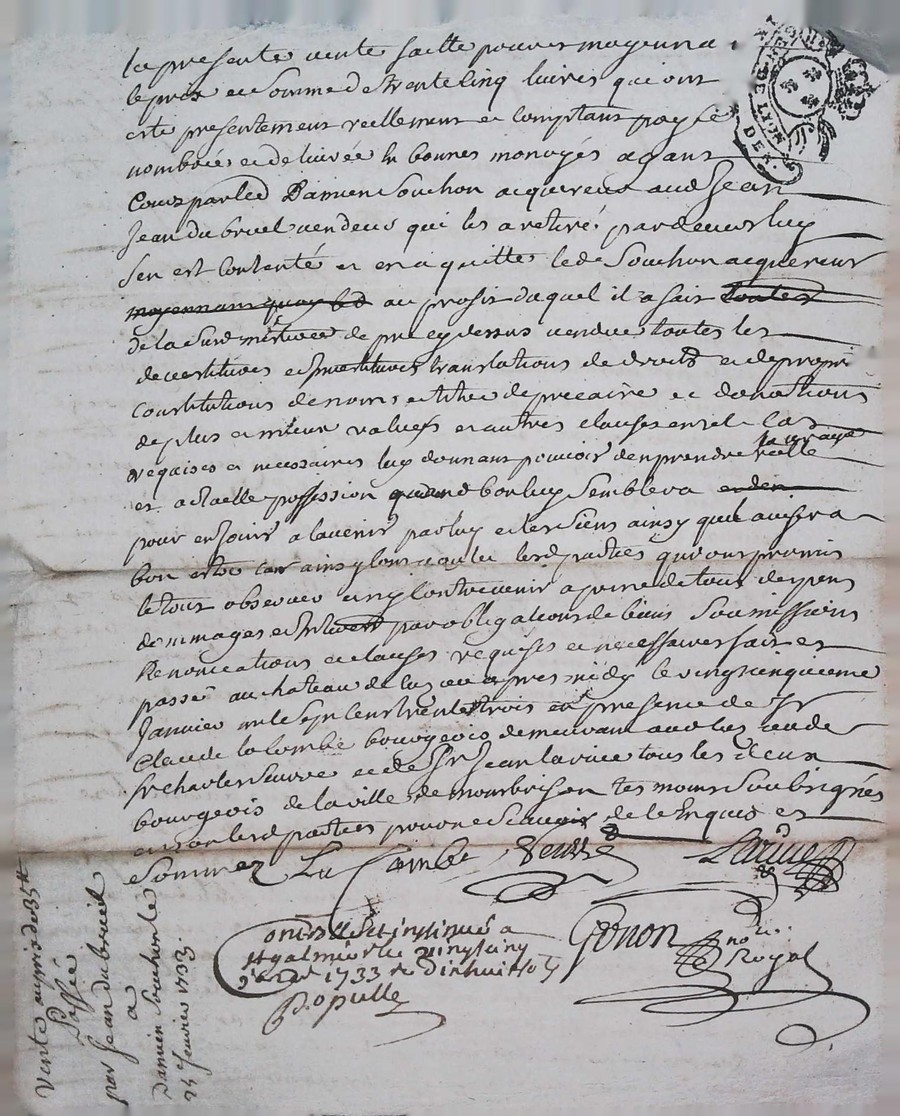 la presente vente faitte pour et moyenna
le prix et somme de trente cinq livres qui ont
esté presentement reellement et comptant payée
nombrée et delivrée en bonnes monoyes ayant
cours par led Damien Souchon acquereur aud Jean
Jean dubruel vendeur qui les a retiré pardevers luy
sen est contenté et en a quitté led Souchon acquereur
moyennant quoy led au profit duquel il a fait toutes
de la surd de pré cy dessus vendue toutes les
devestitures et investitures translations de droits et de propr
constitutions de noms et titre de precaire et donations
de plus et mieux values et autres clauses en tel cas
requises et necessaires luy donnant pouvoir den prendre la vraye reelle
et actuelle possession quand bon luy semblera
pour en jouir a lavenir par luy et les siens ainsy quil avisera
bon estre car ainsy lont voulu lesd parties qui ont promis
le tout observer et ny contrevenir a peine de tous depens
dommages et par obligations de biens soumissions
Renonciations et clauses requises et necessaires fait et
passé au chateau de apres midy le vingt cinquieme
Janvier mil sept cent trente trois en presence de Sr
Claude lacombe bourgeois demeurant aud
Sr Charles et de Sr Jean tous les deux
bourgeois de la ville de montbrison tesmoins soubsignés
et non lesd parties pour ne scavoir de ce Enquis et
Sommez La Combe
Gonon
no.re
Royal
st galmier le vingt cinq
1733 dixhuit sols
Vente au prix de 35 #
Passée
par Jean dubrueil
a
Damien Souchon le
25 Janvier 1733.
DE LYON